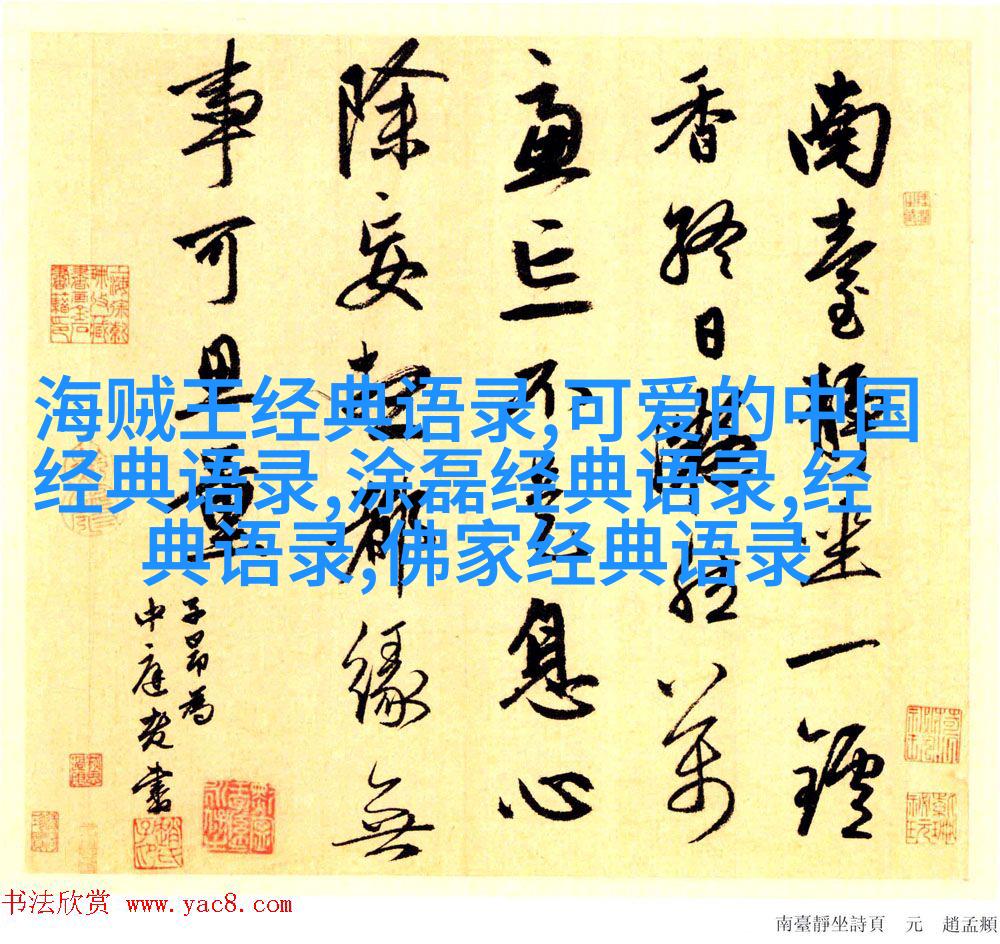 南臺靜坐一鑪
香終日凝然萬
慮亡不是息心
除妄想都緣無
事可思量
子昂為
中庭老書
海贼王经典语录,可爱的中国
经典语录,涂磊经典语录,经
典语录,佛家经典语录
书法欣赏 www.yac8.com
南臺靜坐詩頁 元 趙孟頫